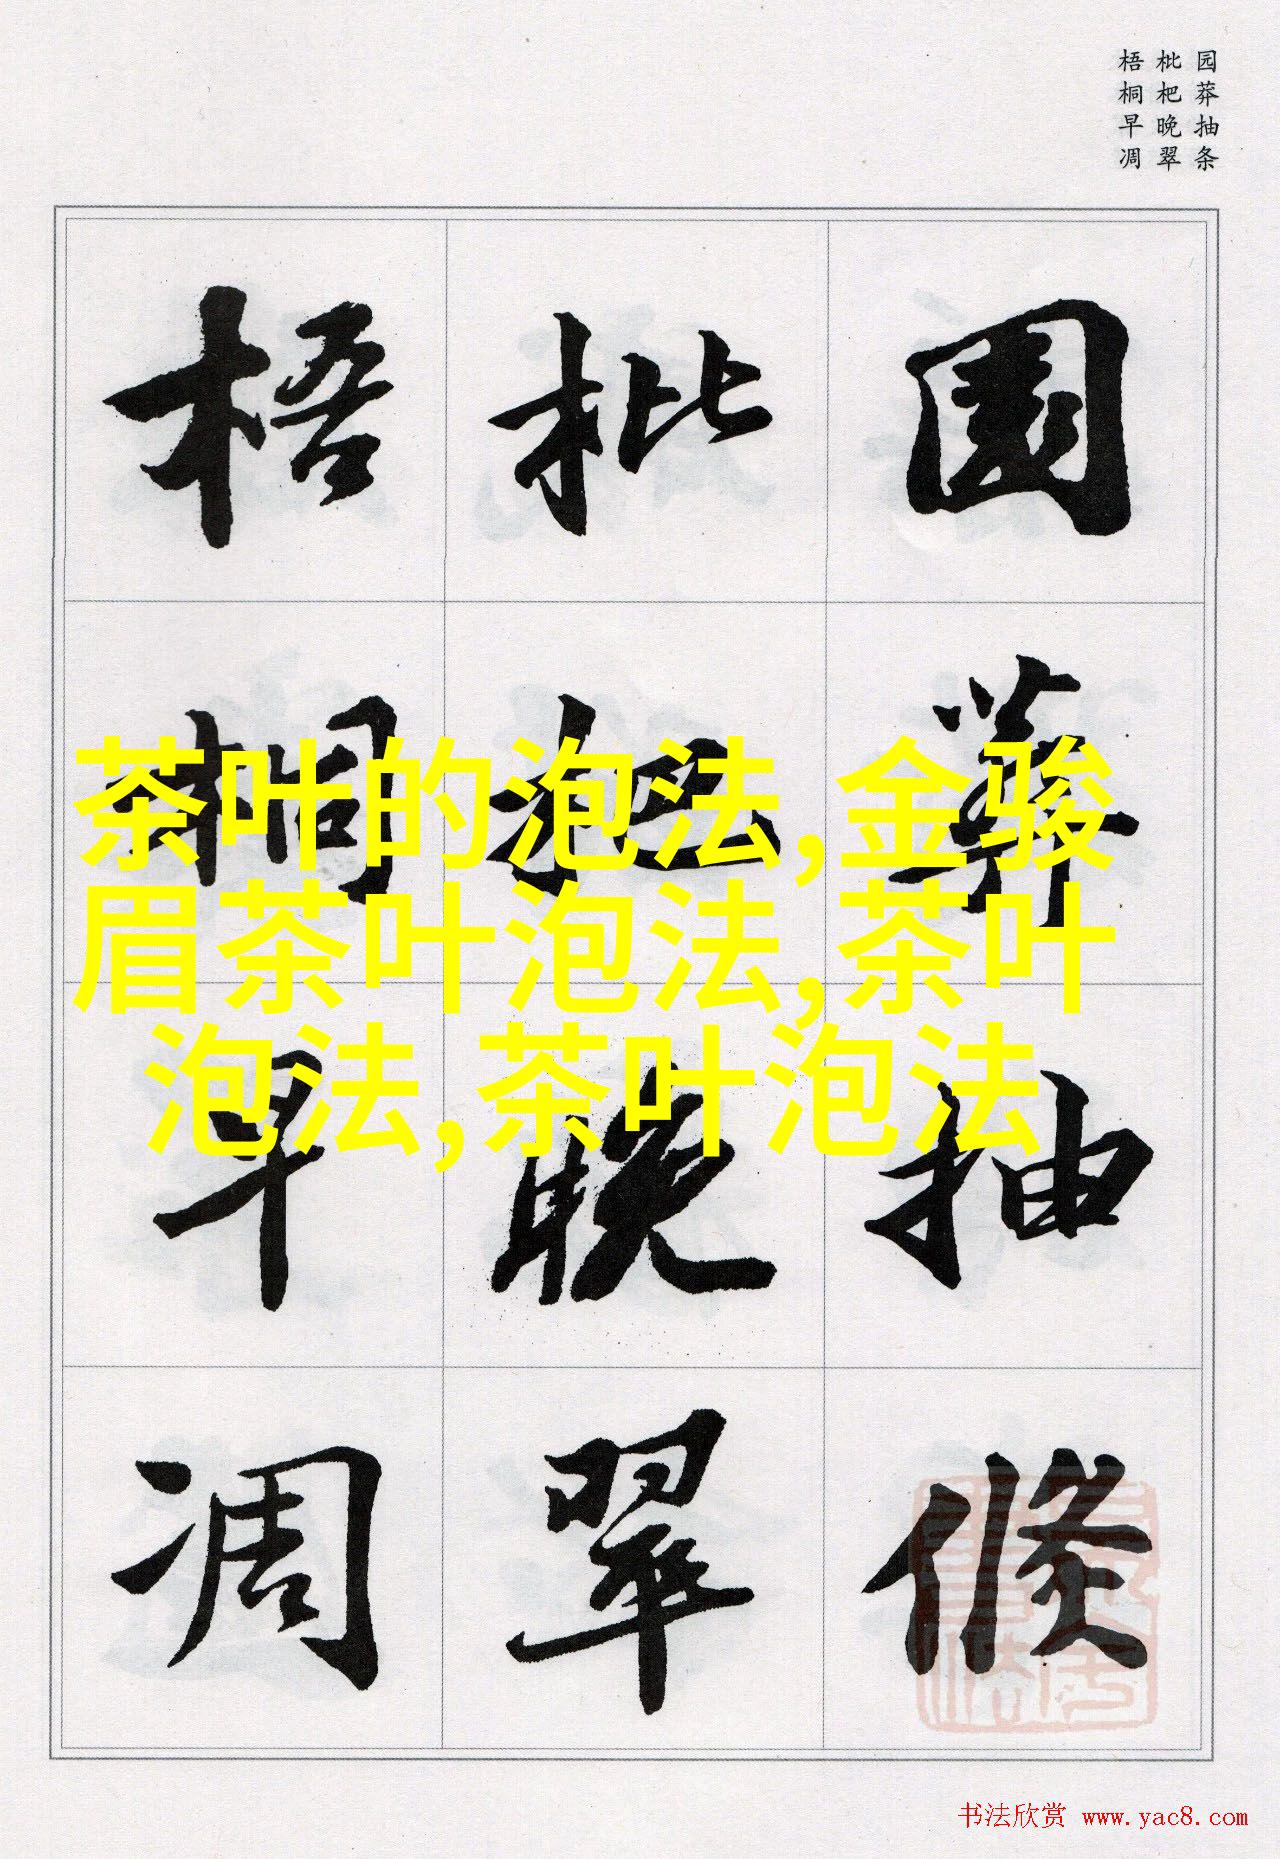 园莽抽条
枇杷晚翠
梧桐早凋
園莽抽條
枇杷晚翠
梧桐早凋
茶叶的泡法,金骏
眉茶叶泡法,茶叶
泡法,茶叶泡法
书法欣赏 www.yac8.com